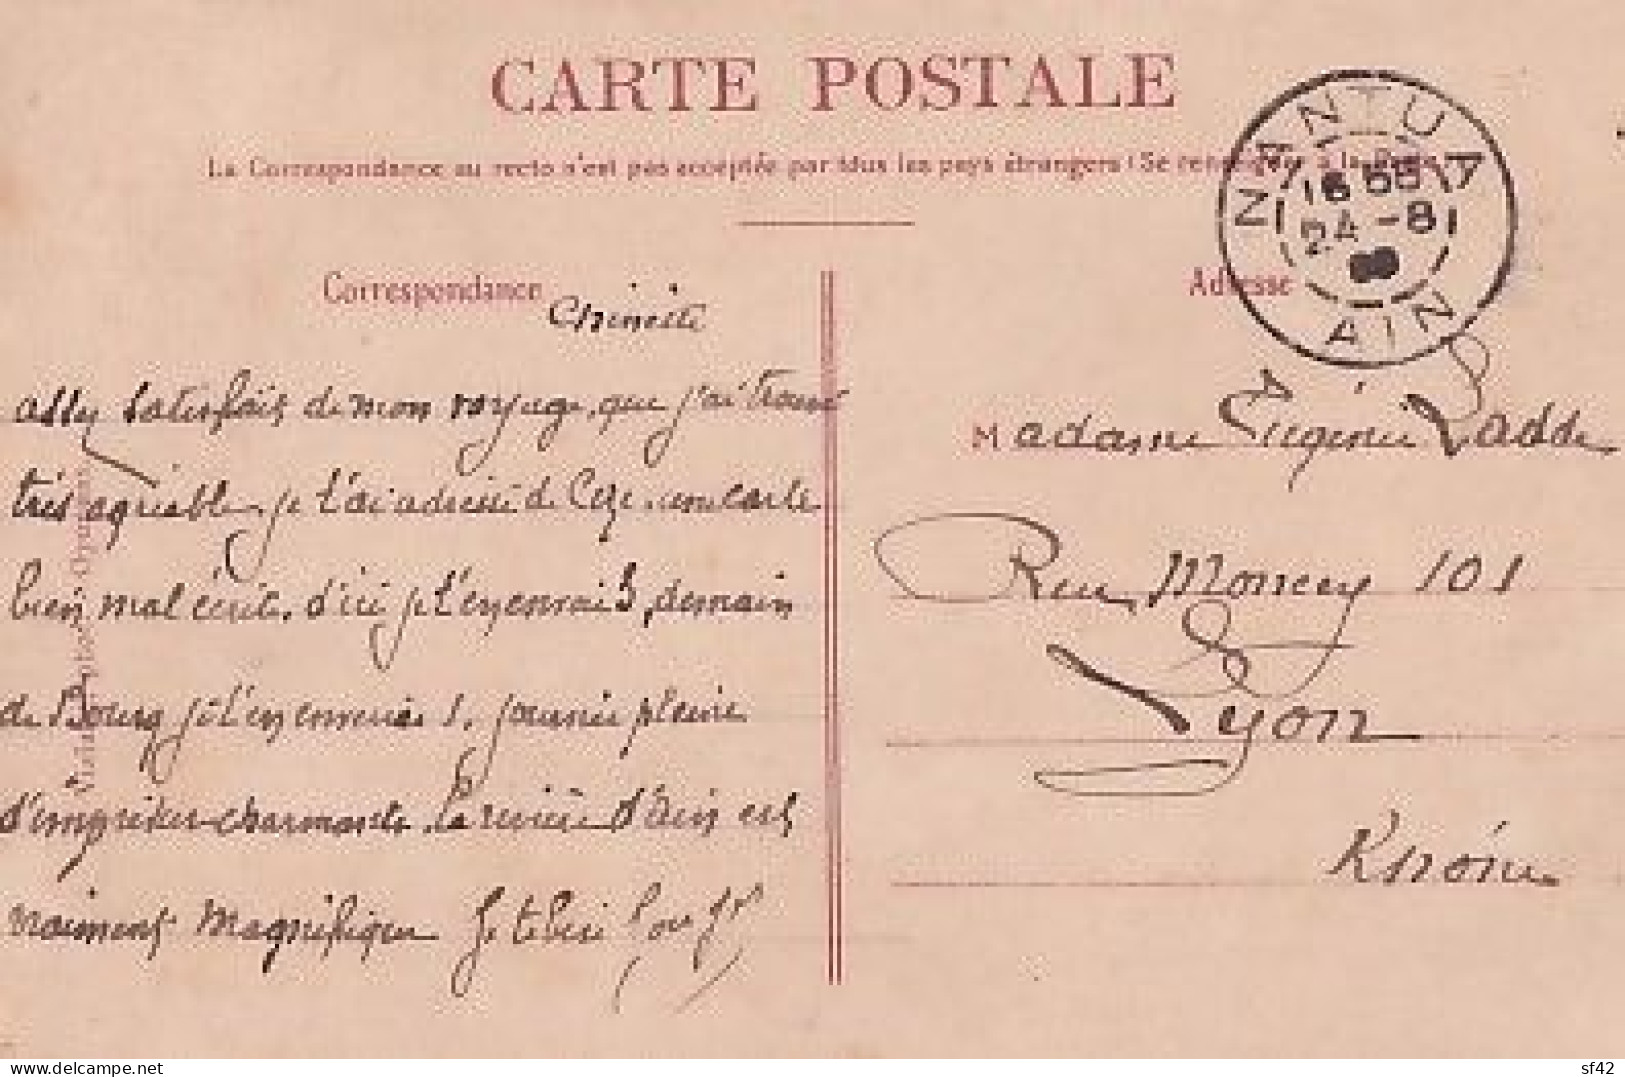 CARTE POSTALE
La Correspondance au recto n'est pas acceptée par tous les pays étrangers (Se renseigner à la Poste
NANTUA
24 -8
AIN
Correspondance
Adresse
assez satisfais de mon voyage, que j'ai trouvé
très agréable, je t'ai adressé de une carte
bien mal écrite, d'ici je t'en enverrai 3, demain
de Bourg je t'en enverrai 1. journée pleine
charmante. La rivière d'Ain est
vraiment magnifique Je
Madame Eugénie Radde
Rue Moncey 101
Lyon
Rhône
delcampe.net
sf42